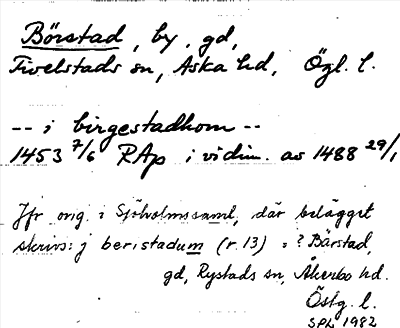 Börstad, by, gd,
Fivelstads sn, Aska hd, Ögl. l.
-- i birgestadhom --
1453 7/6 RAp i vidim. av 1488 29/1
Jfr orig. i Sjöholmssaml, där belägget
skrivs: j beristadum (r. 13) = ? Bärstad,
gd, Rystads sn, Åkerbo hd.
Östg. l.
SPL 1982